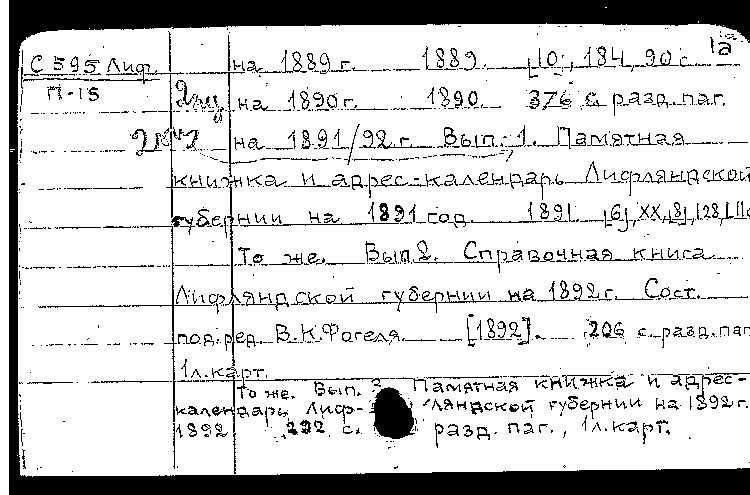 1а
С 595 Лиф. на 1889 г. 1889. [10], 184, 90 с.
П-15 2 экз. на 1890 г. 1890. 376 с. разд. паг.
на 1891/92 г. Вып. 1. Памятная
книжка и адрес-календарь Лифляндской
губернии на 1891 год. 1891. [6], XX, [8], 128,
То же. Вып. 2. Справочная книга
Лифляндской губернии на 1892 г. Сост.
под ред. В.К.Фогеля. [1892]. 206 с. разд. паг
1 л. карт.
То же. Вып. 3 Памятная книжка и адрес-
календарь Лиф- ляндской губернии на 1892 г.
1892 292 с. разд. паг., 1 л. карт.